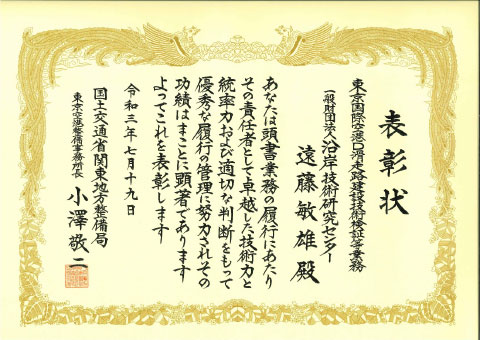 表彰状
東京国際空港D滑走路建設技術検証等業務
一般財団法人沿岸技術研究センター
遠藤敏雄殿
あなたは頭書業務の履行にあたり
その責任者として卓越した技術力と
統率力および適切な判断をもって
優秀な履行の管理に努力されその
功績はまことに顕著であります
よってこれを表彰します
令和三年七月十九日
国土交通省関東地方整備局
東京空港整備事務所長
小澤敬二